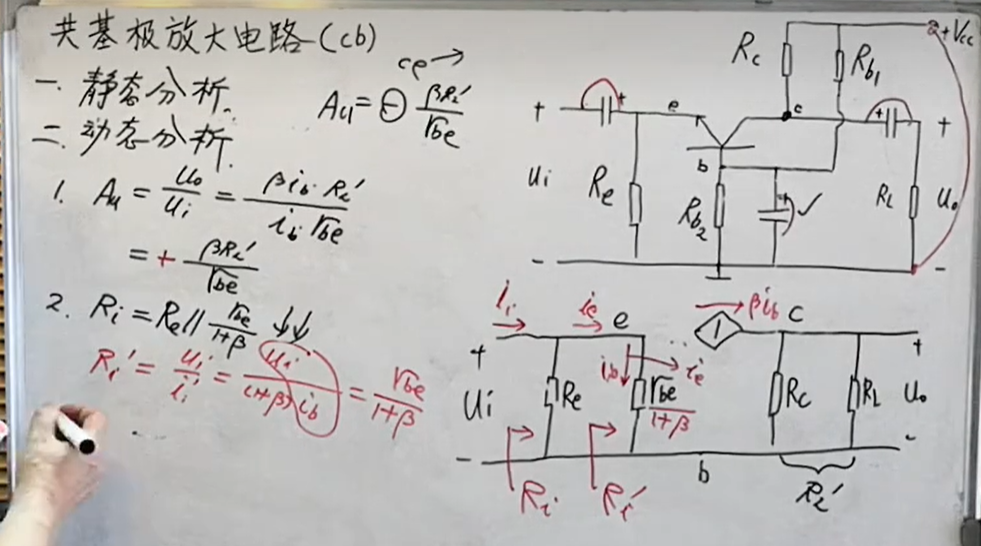 共基极放大电路(cb)
一. 静态分析.
ce→
Au=⊖ βRL'/rbe
二. 动态分析.
1. Au = Uo/Ui = βib·RL'/ib·rbe
= + βRL'/rbe
2. Ri = Re// rbe/1+β ↓↓
Ri' = Ui/ii = Ui/(1+β)ib = rbe/1+β
Rc
Rb1
+Vcc
+
e
+
c
+
+
Ui
b
Re
Rb2
✓
RL
Uo
-
-
ii
ie
e
βib
c
+
ib
ie
+
Ui
Re
rbe/1+β
Rc
RL
Uo
-
b
-
Ri
Ri'
RL'